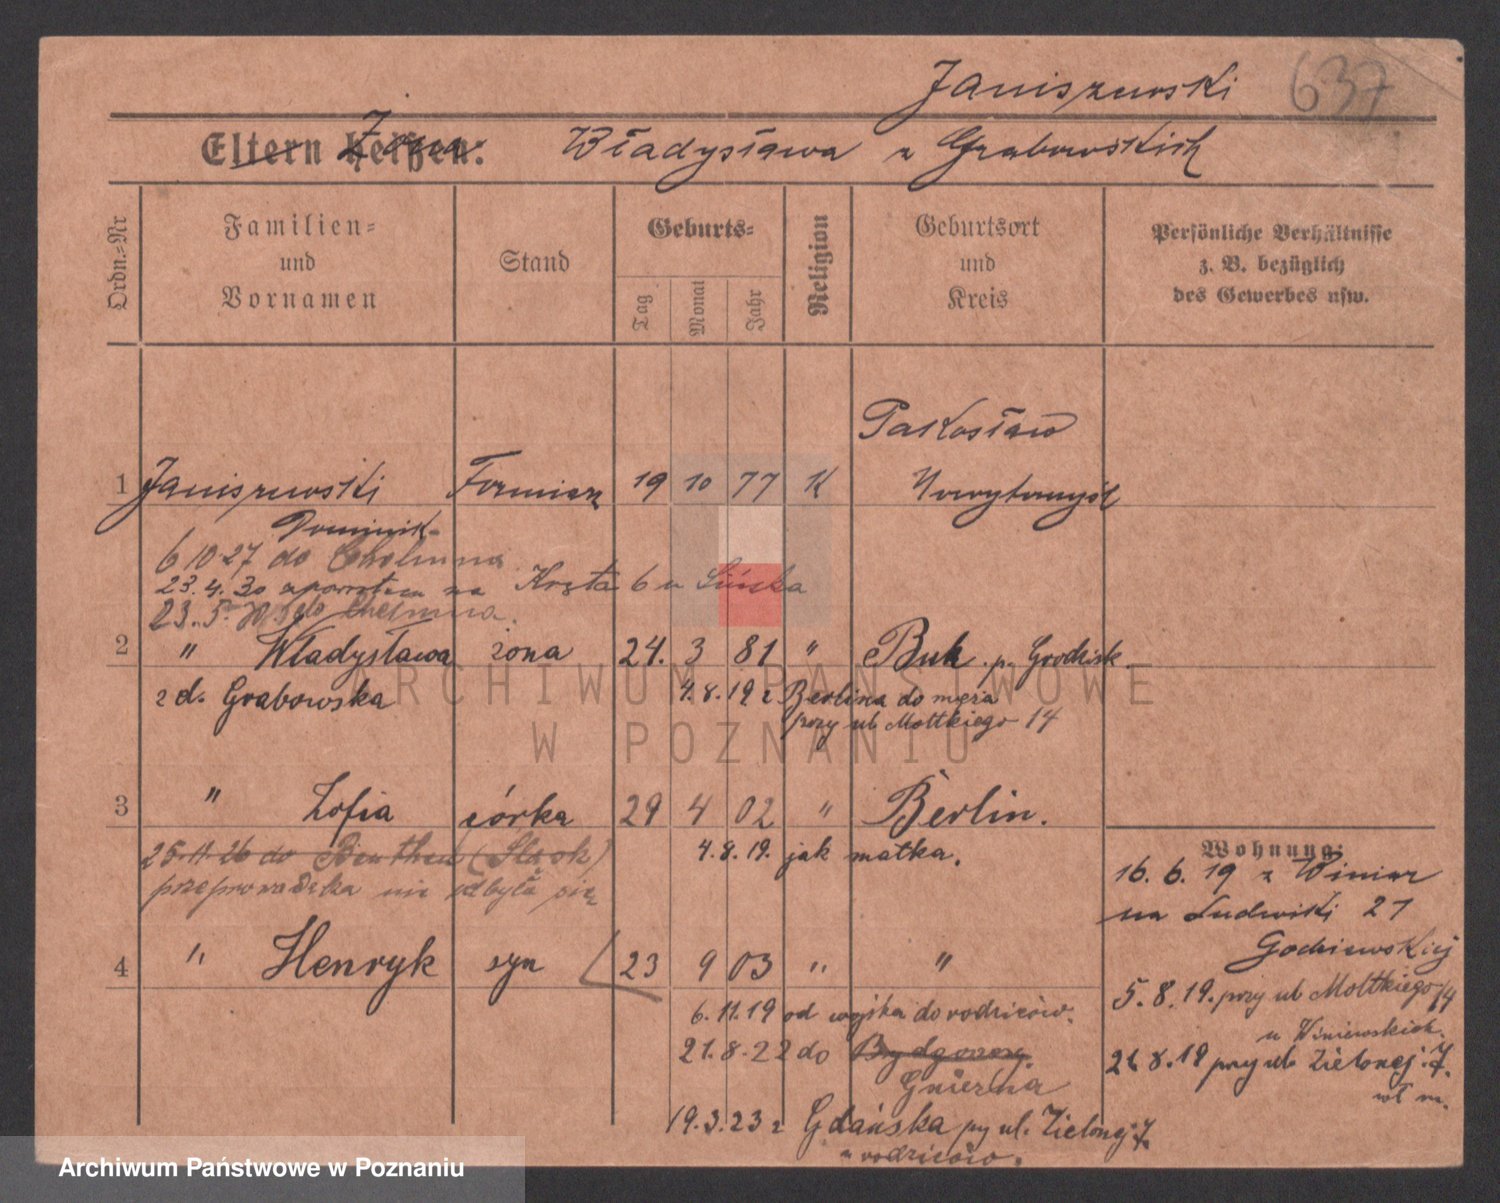 Janiszewski 637
Eltern heißen: Żona Władysława z Grabowskich
Ordn.=Nr
Familien= und Vornamen
Stand
Geburts=
Tag
Monat
Jahr
Religion
Geburtsort und Kreis
Persönliche Verhältnisse z. B. bezüglich des Gewerbes usw.
Pakosław
1 Janiszewski Fornierz 19 10 77 K Nowytomyśl
Dominik
6 10 27 do Chełmna
23.4.30 z powrotem na Kręta 6 u
23.5. do Chełmna.
2 " Władysława żona 24. 3 81 " Buk. p. Grodzisk.
z d. Grabowska 4.8.19 z Berlina do męża
przy ul Moltkiego 14
3 " Zofia córka 29 4 02 " Berlin.
25.11.26 do Beuthen (Śląsk) 4.8.19. jak matka.
przeprowadzka nie odbyła się
4 " Henryk syn 23 9 03 " "
6.11.19 od wojska do rodziców.
21.8.22 do Bydgoszczy.
Gniezna
19.3.23 z Gdańska py ul. Zielonej 7
u rodziców.
Wohnung:
16.6.19 z Winiar
na Ludwiki 21
5.8.19. przy ul Moltkiego 14
u Winiewskich.
przy ul. Zielonej 7.
ARCHIWUM PAŃSTWOWE
W POZNANIU
Archiwum Państwowe w Poznaniu